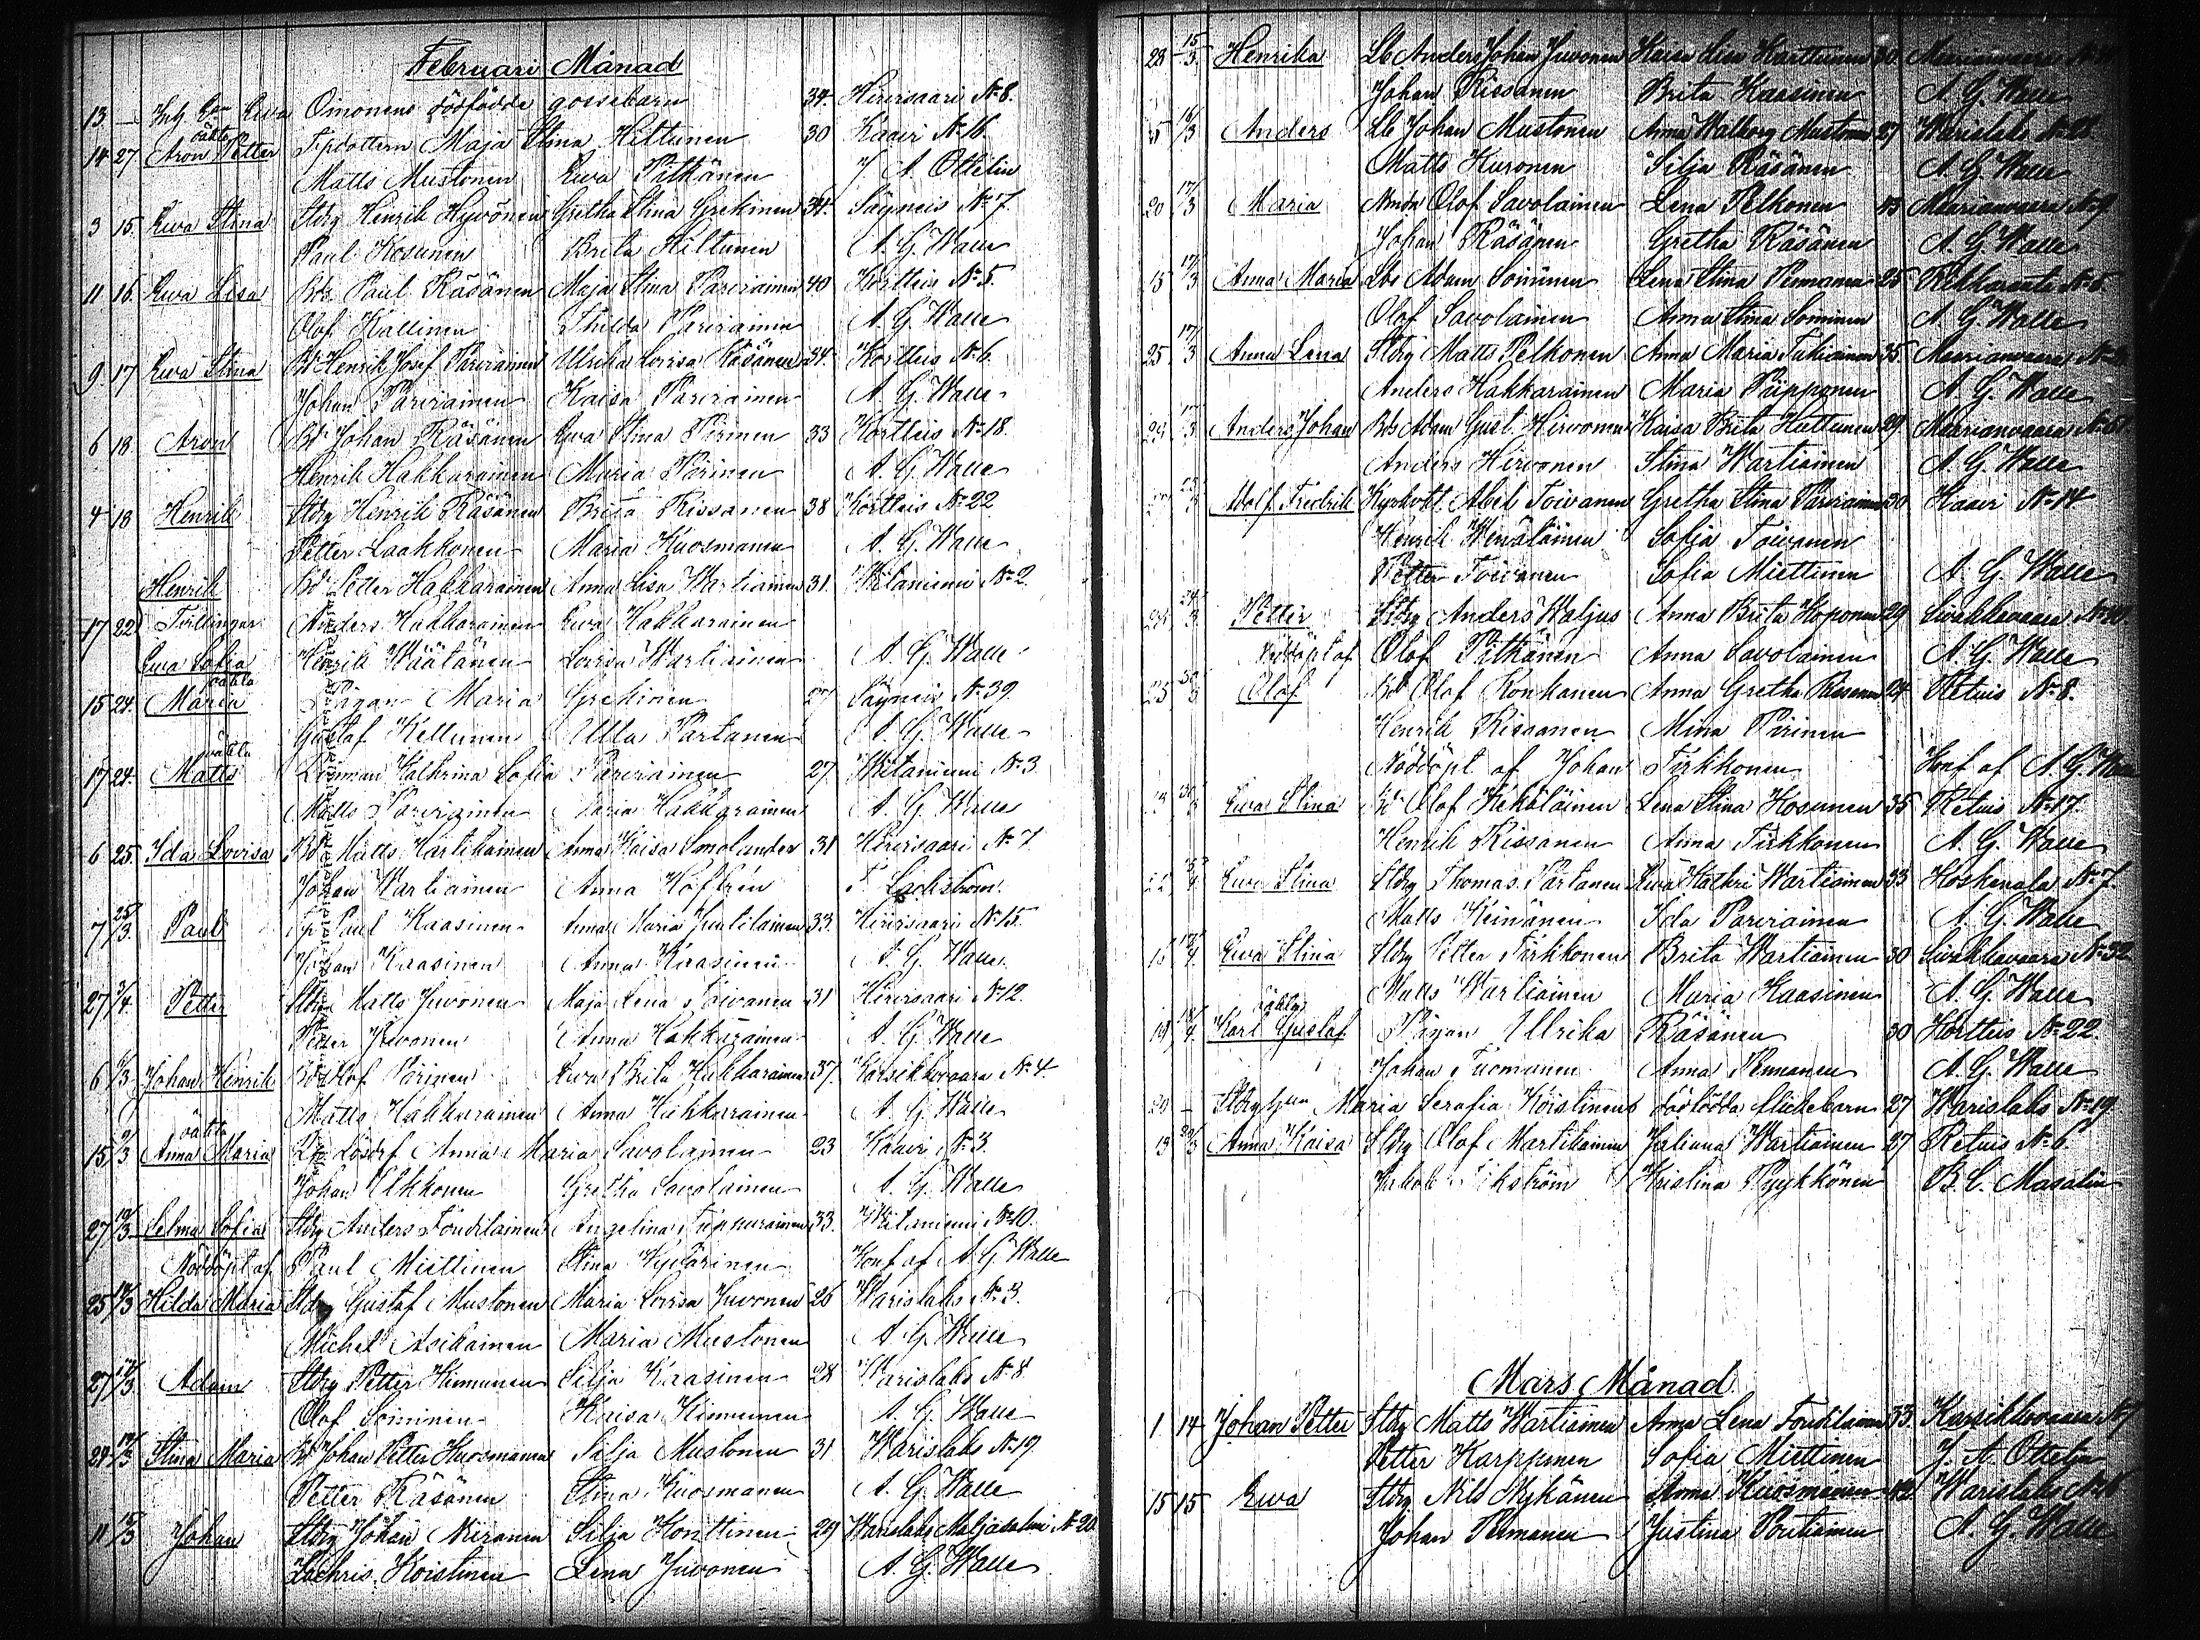 Februari Månad
13 — Inh Eva Oinonens dödfödda gossebarn 34 Hirvisaari No 8.
14 27 Aron Petter oäkta Pigdottern Maja Stina Hiltunen 30 Kaavi No 16.
Matts Mustonen Ewa Pitkänen J A Ottelin
3 15 Ewa Stina Stbrg Henrik Hyvönen Gretha Stina Grekinen 34 Säyneis No 7.
Paul Kosunen Brita Hiltunen A. G. Walle
11 16 Ewa Lisa Bd Paul Räsänen Maja Stina Parviainen 40 Kortteis No 5.
Olof Kallinen Thilda Parviainen A. G. Walle
9 17 Ewa Stina Bd Henrik Josef Parviainen Ulrika Lovisa Räsänen 34 Kortteis No 6.
Johan Parviainen Kaisa Parviainen A. G. Walle
6 18 Aron Bd Johan Räsänen Ewa Stina Piirinen 33 Kortteis No 18.
Henrik Hakkarainen Maria Piirinen A. G. Walle
4 18 Henrik Stbrg Henrik Räsänen Brita Rissanen 38 Kortteis No 22
Petter Laakkonen Maria Kuosmanen A. G. Walle
Henrik Bd Petter Hakkarainen Anna Lisa Wartiainen 31 Niitaniemi No 2.
17 22 Tvillingar Anders Hakkarainen Ewa Hakkarainen
Ewa Sofia Henrik Väätänen Lovisa Wartiainen A. G. Walle
15 24 Maria oäkta Pigan Maria Grekinen 27 Säyneis No 39.
Gustaf Keltunen Ulla Partanen A. G. Walle
17 24 Matts oäkta Kathrina Sofia Parviainen 27 No 3.
Matts Parviainen Maria Hakkarainen A. G. Walle
6 25 Ida Lovisa Bd Matts Martikainen Anna Kaisa Smolander 31 Hirvisaari No 7
Johan Wartiainen Anna Hoffrén F. Lackström.
7 25/3 Paul Paul Kaasinen Anna Maria Juutilainen 33 Hirvisaari No 15.
Johan Kaasinen Anna Kaasinen A. G. Walle
27 3/4 Petter Stbrg Matts Juvonen Maja Lena Toivanen 31 Hirvisaari No 12.
Petter Juvonen Anna Hakkarainen A. G. Walle
6 6/3 Johan Henrik Bd Olof Piirinen Ewa Brita Hakkarainen 37 Karsikkovaara No 4.
Matts Hakkarainen Anna Hakkarainen A. G. Walle
15 9/3 Anna Maria oäkta Lösdr Anna Maria Savolainen 23 Kaavi No 3.
Johan Ukkonen Gretha Savolainen A. G. Walle
27 10/3 Selma Sofia Stbrg Anders Toudilainen Angelina Tuppurainen 33 No 10.
Nöddöpt af Paul Miettinen Stina Hyvärinen Konf af A. G. Walle
25 12/3 Hilda Maria Stbrg Gustaf Mustonen Maria Lovisa Juvonen 26 Warislaks No 3.
Michel Asikainen Maria Mustonen A. G. Walle
27 12/3 Adam Stbrg Petter Kinnunen Silja Kaasinen 28 Warislaks No 8
Olof Soininen Kaisa Kinnunen A. G. Walle
24 12/3 Stina Maria Bd Johan Petter Kuosmanen Silja Mustonen 31 Warislaks No 19
Petter Räsänen Stina Kuosmanen A. G. Walle
11 15/3 Johan Stbrg Johan Niiranen Silja Konttinen 29 Warislaks Maljasalmi No 20
Zachris Koistinen Lena Juvonen A. G. Walle
28 15/3 Henrika Lb Anders Johan Juvonen Kaisa Lisa Karttunen 30 Maarianvaara
Johan Rissanen Brita Kaasinen A. G. Walle
5 16/3 Anders Lb Johan Mustonen Anna Walborg Mustonen 27 Warislaks No 28.
Matts Huronen Silja Räsänen A. G. Walle
20 17/3 Maria Olof Savolainen Lena Pelkonen 45 Maarianvaara No 9
Johan Räsänen Gretha Räsänen A. G. Walle
15 17/3 Anna Maria Lbs Adam Soininen Lena Stina Pennanen 25 No 5
Olof Savolainen Anna Stina Soininen A. G. Walle
25 17/3 Anna Lena Stbrg Matts Pelkonen Anna Maria Tukiainen 35 Maarianvaara No
Anders Hakkarainen Maria Piipponen A. G. Walle
24 17/3 Anders Johan Bds Adam Gust. Hirvonen Kaisa Brita Huttunen 29 Maarianvaara No 6
Anders Hirvonen Stina Wartiainen A. G. Walle
23/3 Adolf Fredrik Kyrkovkt Abel Toivanen Gretha Stina Parviainen 30 Kaavi No 14
Henrik Wenäläinen Sofia Toivanen
Petter Toivanen Sofia Miettinen A. G. Walle
24/3 Petter Stbrg Anders Waljus Anna Brita Koponen 29 Siwakkavaara
Nöddöpt af Olof Pitkänen Anna Savolainen A. G. Walle
25 30/3 Olof Bd Olof Ronkanen Anna Gretha Rissanen 24 Retuis No 8.
Henrik Rissanen Mina Piirinen
Nöddöpt af Johan Tirkkonen Konf af A. G. Walle
30/3 Ewa Stina Bd Olof Kekäläinen Lena Stina Kosunen 35 Retuis No 17.
Henrik Rissanen Anna Tirkkonen A. G. Walle
Ewa Stina Stbrg Thomas Partanen Ewa Kathri Wartiainen 33 Koskenala No 7.
Matts Keinänen Ida Parviainen A. G. Walle
Ewa Stina Stbrg Petter Tirkkonen Brita Wartiainen 30 Siwakkavaara No 32
Matts Wartiainen Maria Kaasinen A. G. Walle
19 18/4 Karl Gustaf oäkta Pigan Ullrika Räsänen 30 Kortteis No 22.
Johan Tuomanen Anna Pennanen A. G. Walle
20 — Stbrg Maria Serafia Koistinens dödfödda flickebarn 27 Warislaks No 19
13 Anna Kaisa Stbrg Olof Martikainen Juliana Wartiainen 27 Retuis No 6
Wikström Kristina Pyykkönen B. C. Masalin
Mars Månad
1 14 Johan Petter Stbrg Matts Wartiainen Anna Lena Toudilainen 33 Karsikkovaara No 7
Petter Karppinen Sofia Miettinen J. A. Ottelin
15 15 Ewa Stbrg Nils Nykänen Anna Kuosmanen 42 Warislaks
Johan Pennanen Justina Poutiainen A. G. Walle